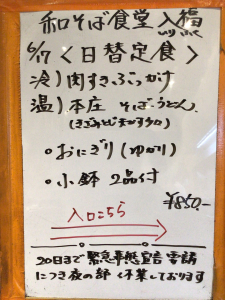 和そば食堂 入福
6/17〈日替定食〉
冷)肉すきぶっかけ
温)本庄 そば・うどん
・おにぎり(ゆかり)
・小鉢 2品付
¥850.-
入口こちら
20日まで緊急事態宣言 要請
につき夜の部 休業しております